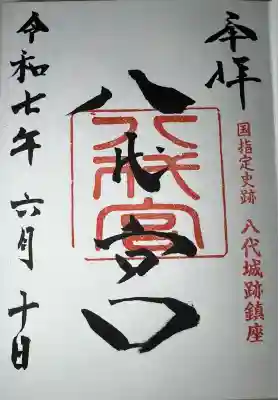 奉拝
国指定史跡 八代城跡鎮座
八代宮
八代宮
令和七年 六月 十日